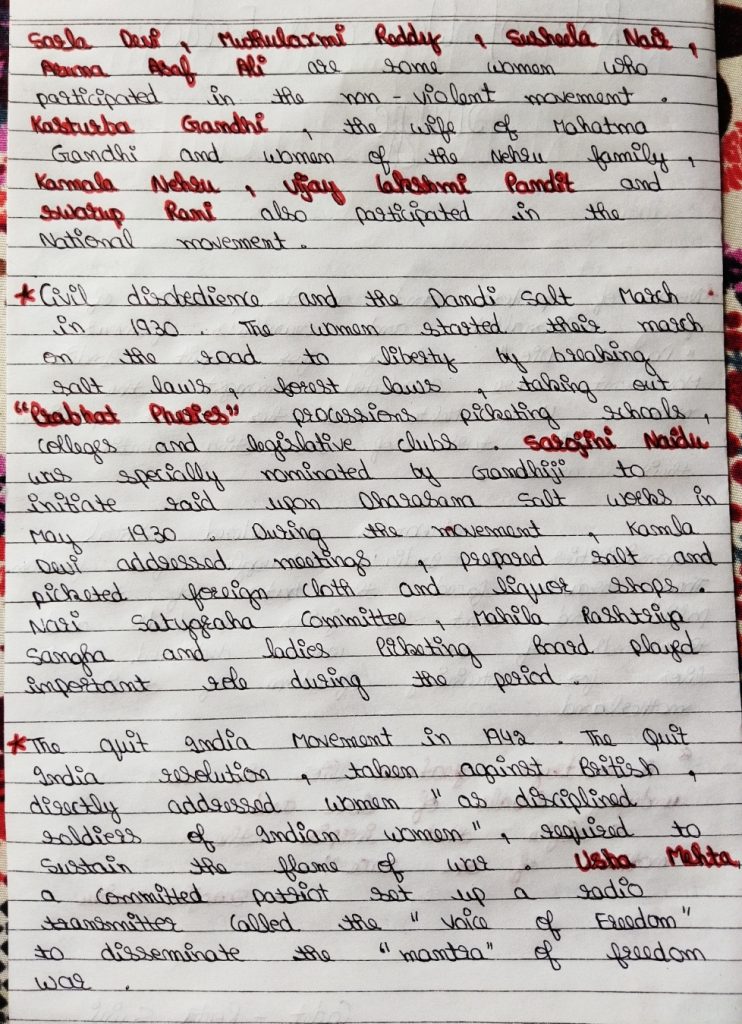 Sarla Devi, Muthulaxmi Reddy, Susheela Nair,
Aruna Asaf Ali are some women who
participated in the non-violent movement.
Kasturba Gandhi, the wife of Mahatma
Gandhi and women of the Nehru family,
Kamala Nehru, Vijay Lakshmi Pandit and
Swarup Rani also participated in the
National movement.
*Civil disobedience and the Dandi Salt March
in 1930. The women started their march
on the road to liberty by breaking
salt laws, forest laws, taking out
"Prabhat Pheries" processions picketing schools,
colleges and legislative clubs. Sarojini Naidu
was specially nominated by Gandhiji to
initiate raid upon Dharasana Salt works in
May 1930. During the movement, Kamla
Devi addressed meetings, prepared salt and
picketed foreign cloth and liquor shops.
Nari Satygraha Committee, Mahila Rashtriy
Sangha and ladies Picketing Board played
important role during the period.
*The quit India Movement in 1942. The Quit
India resolution, taken against British,
directly addressed women "as disciplined
soldiers of Indian women", required to
sustain the flame of war. Usha Mehta,
a committed patriot set up a radio
transmitter called the "Voice of Freedom"
to disseminate the "mantra" of freedom
war.